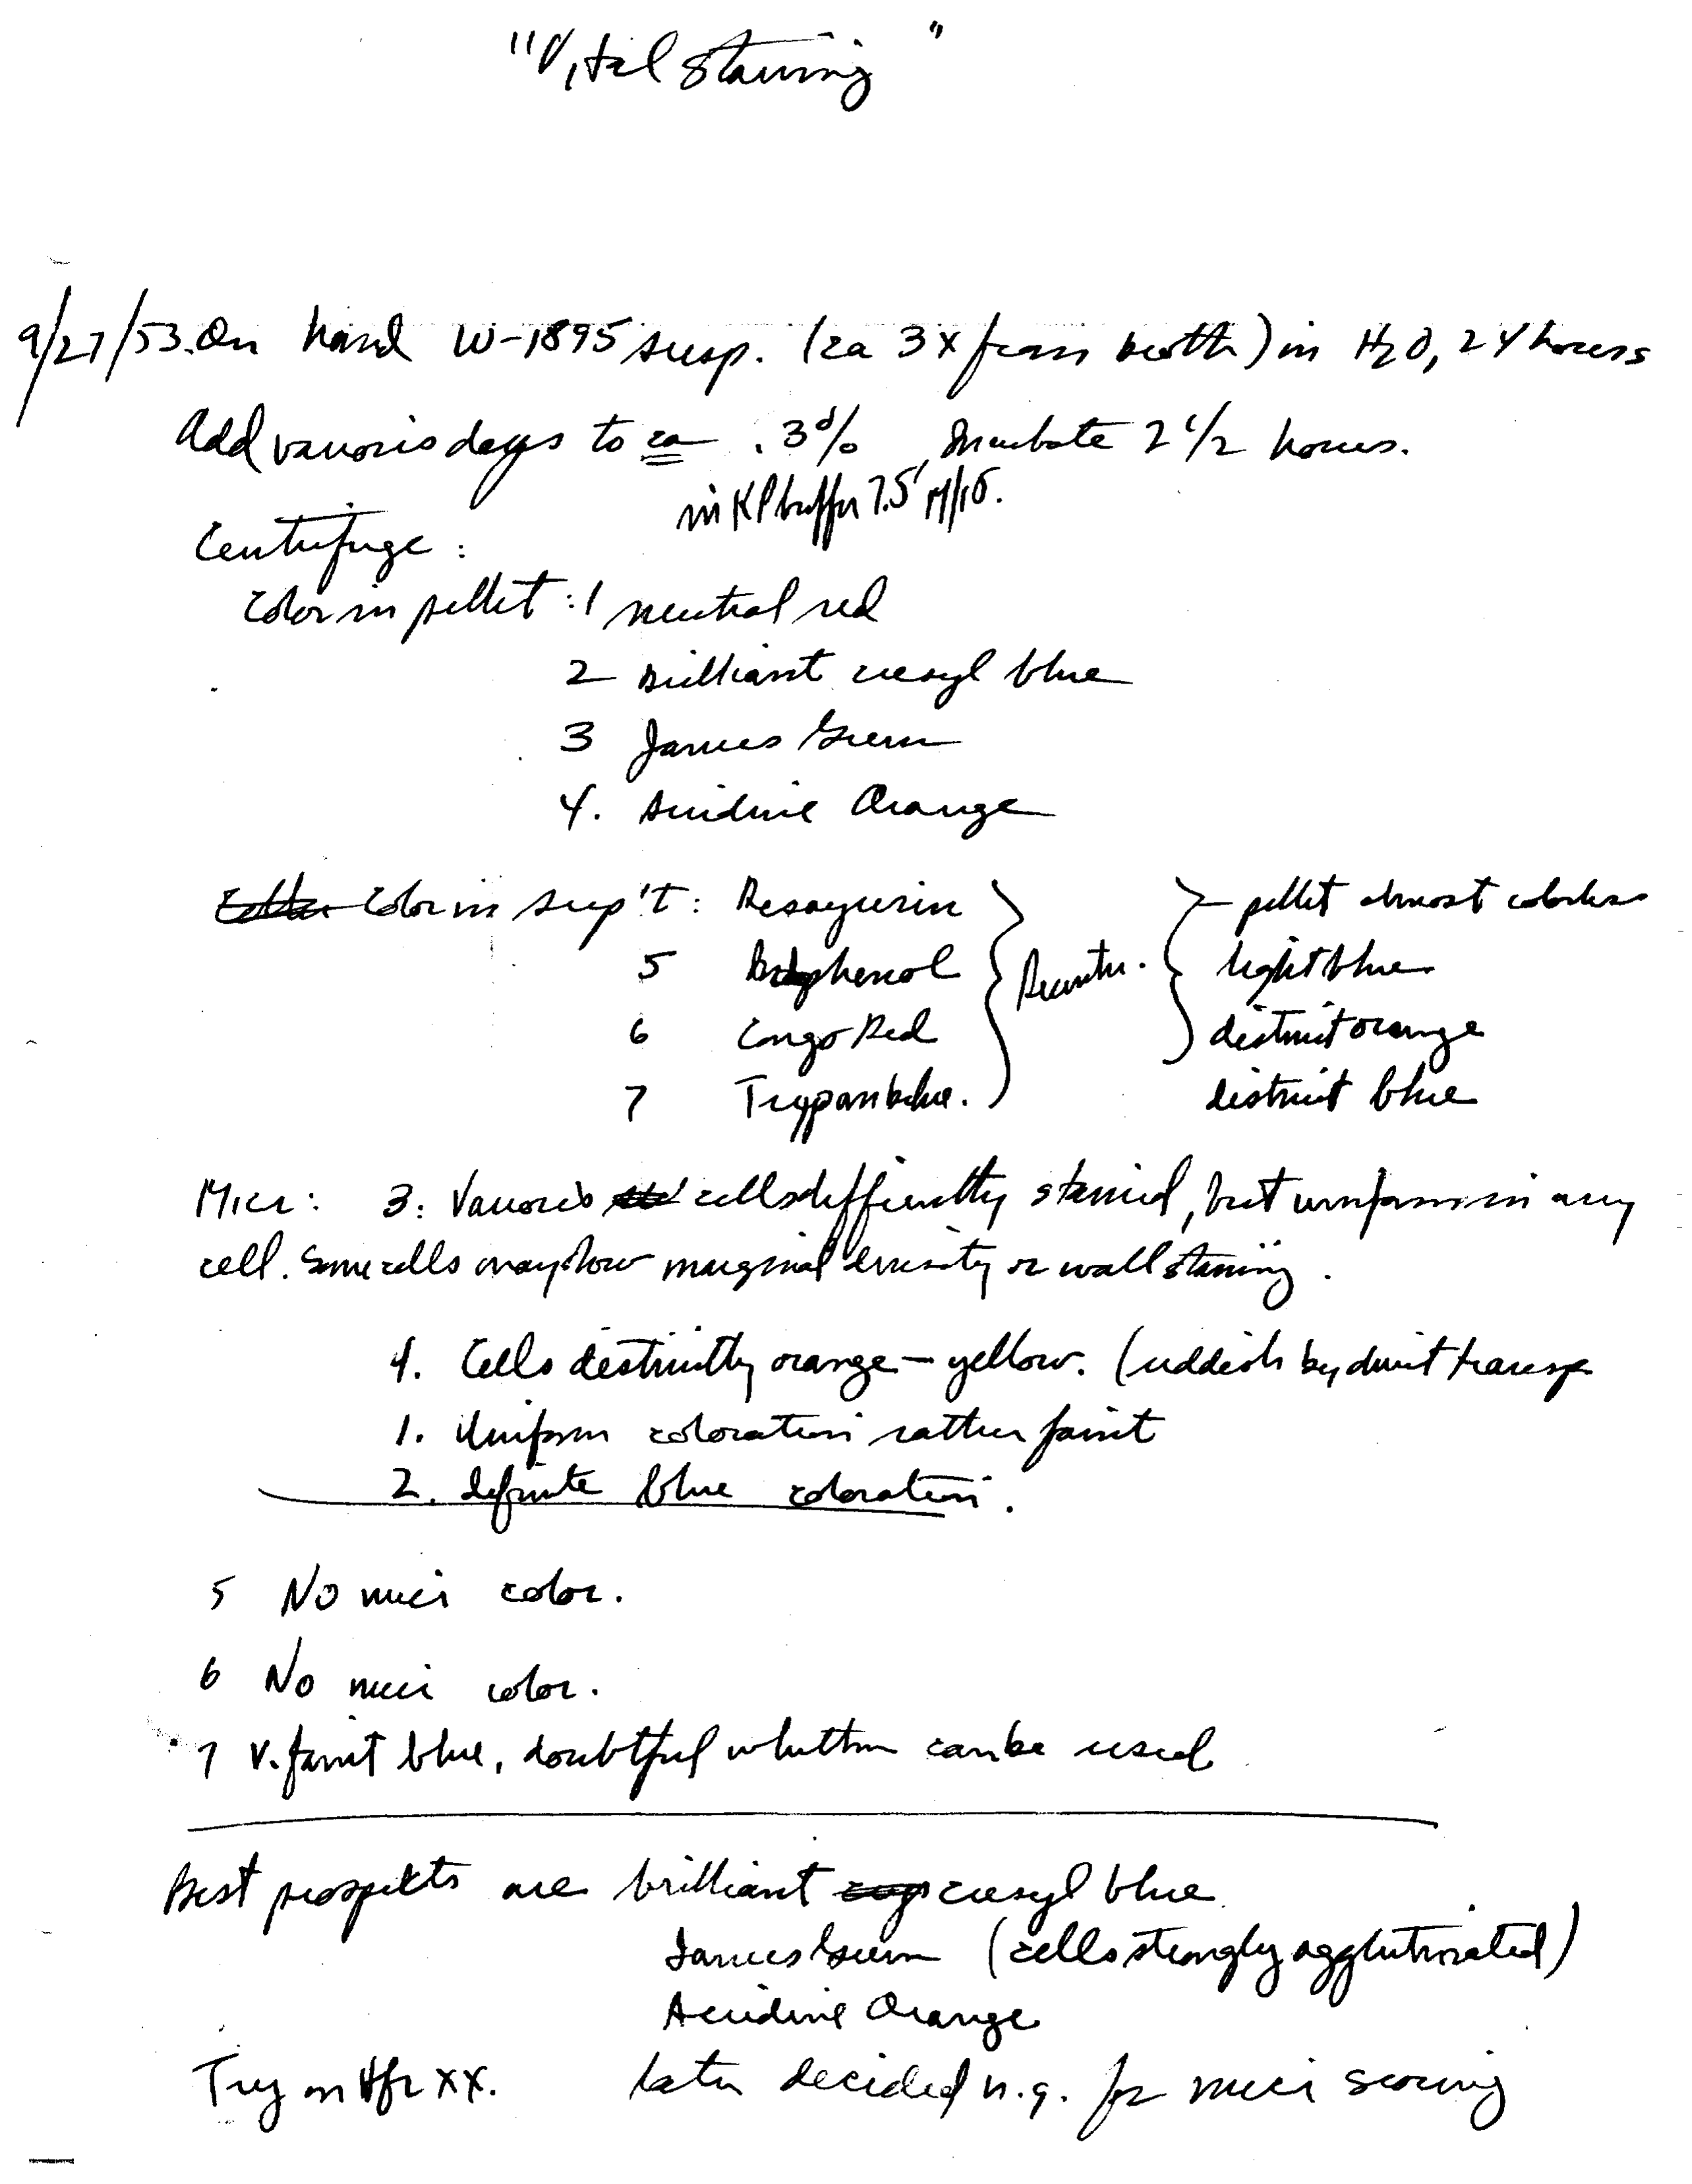 "Vital staining"
9/27/53. On hand W-1895 susp. (ca 3x from broth) in H2O, 24 hours
Add various dyes to ca .3%, Incubate 2 1/2 hours.
in KP buffer 7.5 M/15.
Centrifuge:
Color in pellet: 1 neutral red
2 Brilliant cresyl blue
3 Janus Green
4. Acridine Orange
Color in sup't: Resazurin } } pellet almost colorless
5 phenol light blue
6 Congo Red distinct orange
7 Trypan blue. distinct blue
Micr: 3: Various cells differently stained, but uniform in any
cell. Some cells may show marginal density or wall staining.
4. Cells distinctly orange-yellow. (reddish by direct transp
1. Uniform coloration rather faint
2. definite blue coloration.
5 No micr color.
6 No micr color.
7 v. faint blue, doubtful whether can be used
Best prospects are brilliant cresyl blue
Janus Green (cells strongly agglutinated)
Acridine Orange
Try on Hfr XX. Later decided n.g. for micr scoring